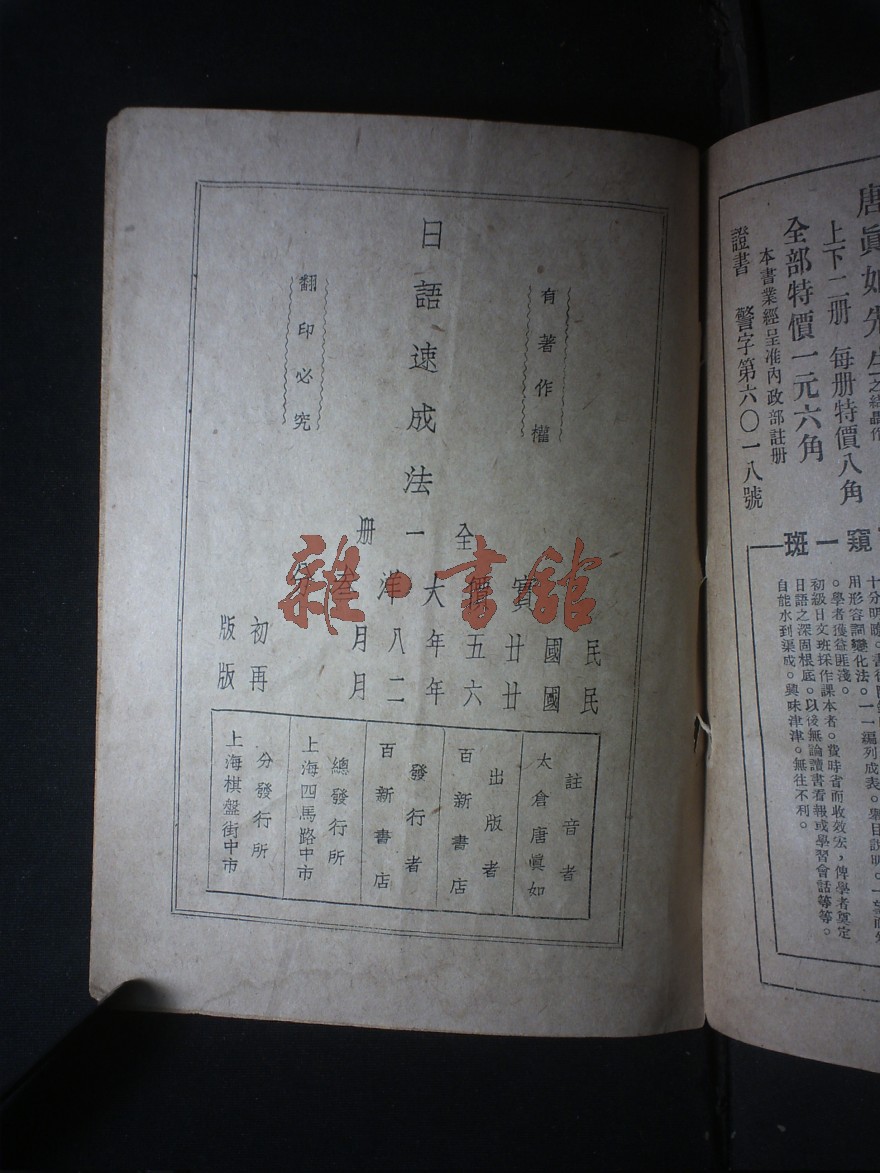 唐眞如先生之結晶作
上下二册 每册特價八角
全部特價一元六角
本書業經呈准內政部註册
證書 警字第六〇一八號
窺一斑
十分明瞭。書後
用形容詞變化法。一一編列成表。
。學者獲益匪淺。
初級日文班採作課本者。費時省而收效宏，俾學者奠定
日語之深固根底。以後無論讀書看報或學習會話等等。
自能水到渠成。興味津津。無往不利。
有著作權
日語速成法
翻印必究
全一册
實價大洋
民國廿五年八月初版
民國廿六年二月再版
註音者
太倉唐眞如
出版者
百新書店
發行者
百新書店
總發行所
上海四馬路中市
分發行所
上海棋盤街中市
雜·書舘